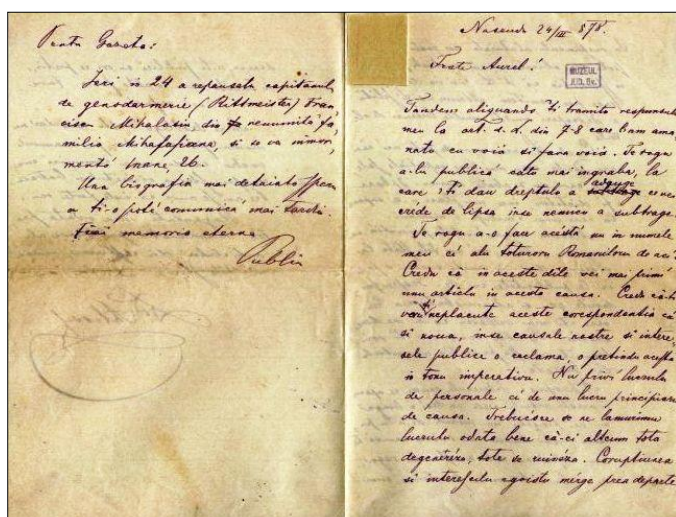 Pentu Gazeta:
Ieri in 24 a repausatu capitanul
de gensdarmerie (Rittmeister) Fran-
ciscu Mihalasiu, din renumita fa-
milia Mihalasiana, si se va inmor-
mentá mane 26.
Una biografia mai detaiata sper
a ti-o poté comunicá mai tardiu.
Fiai memoria eterna
Publiu
Naseudu 24/III 878.
Frate Aurel!
MUZEUL
Tandem aliquando ti tramitu responsulu
meu la art. s. d. din 7-8 care l'am ama-
natu cu voia si fara voia. Te rogu
a-lu publicá catu mai ingraba, la
care ti dau dreptulu a adauge ce vei
crede de lipsa inse nemicu a subtrage.
Te rogu a-o face acésta nu in numele
meu ci alu toturoru Romaniloru de aici
Credu cà in aceste dile vei mai primi
unu articlu in acesta causa. Credu cà-ti
neplacute aceste corespondentie cá
si noua, inse causale nostre si intere-
sele publice o reclama, o pretindu acésta
in tonu imperativu. Nu privi lucrulu
de personale ci de unu lucru principiaru
de causa. Trebuiesce se ne lamurimu
lucrulu odata bene cà-ci altcum tota
degeneréza, tote se ruinéza. Coruptiunea
si interesulu egoistu mérge prea departe